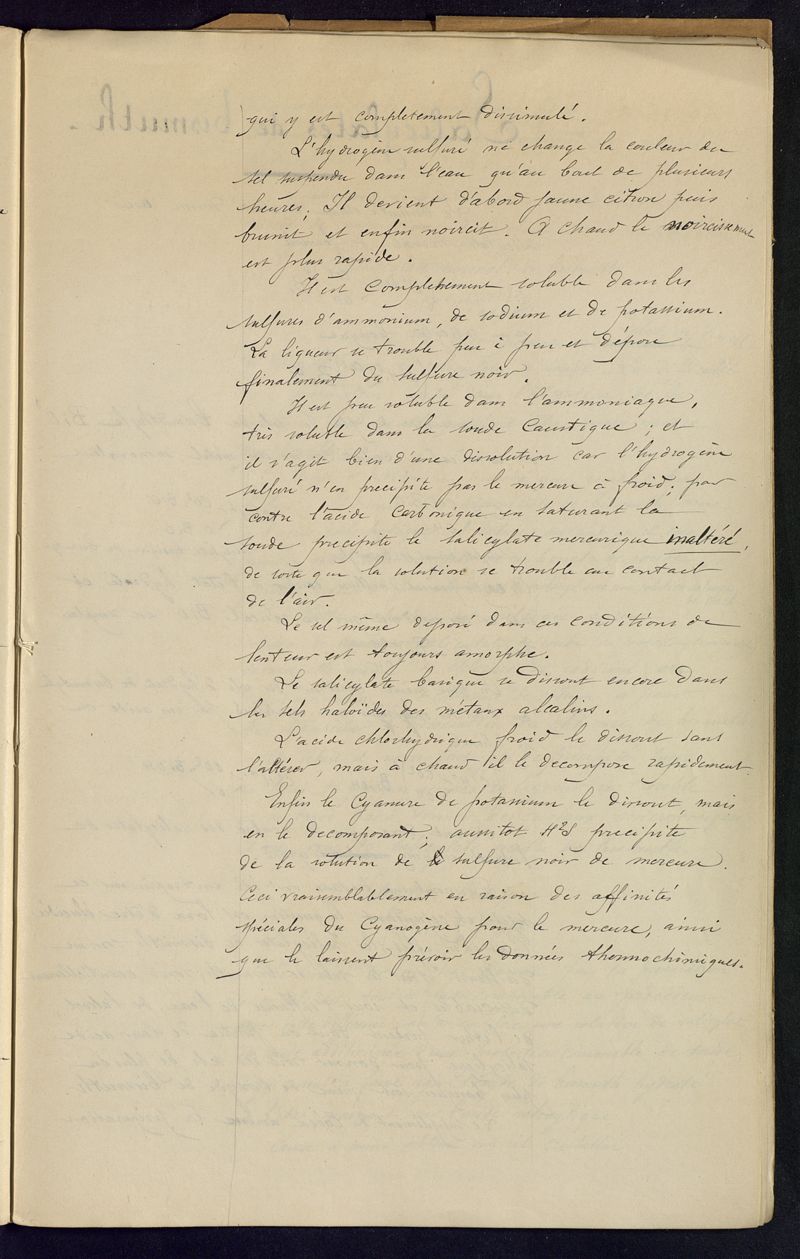 qui y est completement dissimulé.
L'hydrogène sulfuré ne change la couleur du
sel suspendu dans l'eau qu'au bout de plusieurs
heures; Il devient d'abord jaune citron puis
brunit et enfin noircit. A chaud le noircissement
est plus rapide.
Il est complètement soluble dans les
sulfures d'ammonium, de sodium et de potassium.
La liqueur se trouble peu à peu et dépose
finalement du sulfure noir.
Il est peu soluble dans l'ammoniaque,
très soluble dans la soude caustique; et
il s'agit bien d'une dissolution car l'hydrogène
sulfuré n'en precipite pas le mercure à froid; par
contre l'acide carbonique en saturant la
soude precipite le salicylate mercurique inaltéré,
de sorte que la solution se trouble au contact
de l'air.
Le sel même déposé dans ces conditions de
lenteur est toujours amorphe.
Le salicylate basique se dissout encore dans
les sels haloïdes des métaux alcalins.
L'acide chlorhydrique froid le dissout sans
l'altérer, mais à chaud il le decompose rapidement.
Enfin le Cyanure de potassium le dissout, mais
en le decomposant; aussitot H²S precipite
de la solution de sulfure noir de mercure.
Ceci vraisemblablement en raison des affinités
spéciales du Cyanogène pour le mercure, ainsi
que le laissent prévoir les données thermochimiques.